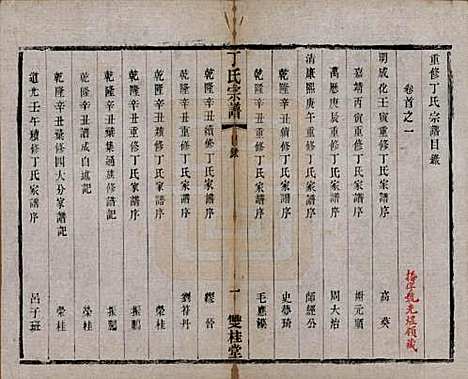 重修丁氏宗譜目錄
卷首之一
明成化壬寅重修丁氏家譜序 高英
嘉靖丙寅重修丁氏家譜序 謝元順
萬曆庚辰重修丁氏家譜序 周大治
清康熙庚午重修丁氏家譜序 師經公
乾隆辛丑重修丁氏家譜序 史夢琦
乾隆辛丑重修丁氏家譜序 毛應藻
丁氏宗譜
目錄
一
雙桂堂
乾隆辛丑續修丁氏家譜序 繆晉
乾隆辛丑重修丁氏家譜序 劉符丹
乾隆辛丑重修丁氏家譜序 榮桂
乾隆辛丑葉集通族修譜記 振鵬
乾隆辛丑譜成自述記 振鵬
乾隆辛丑葉修四大分家譜記 榮桂
道光壬午續修丁氏家譜序 呂子班